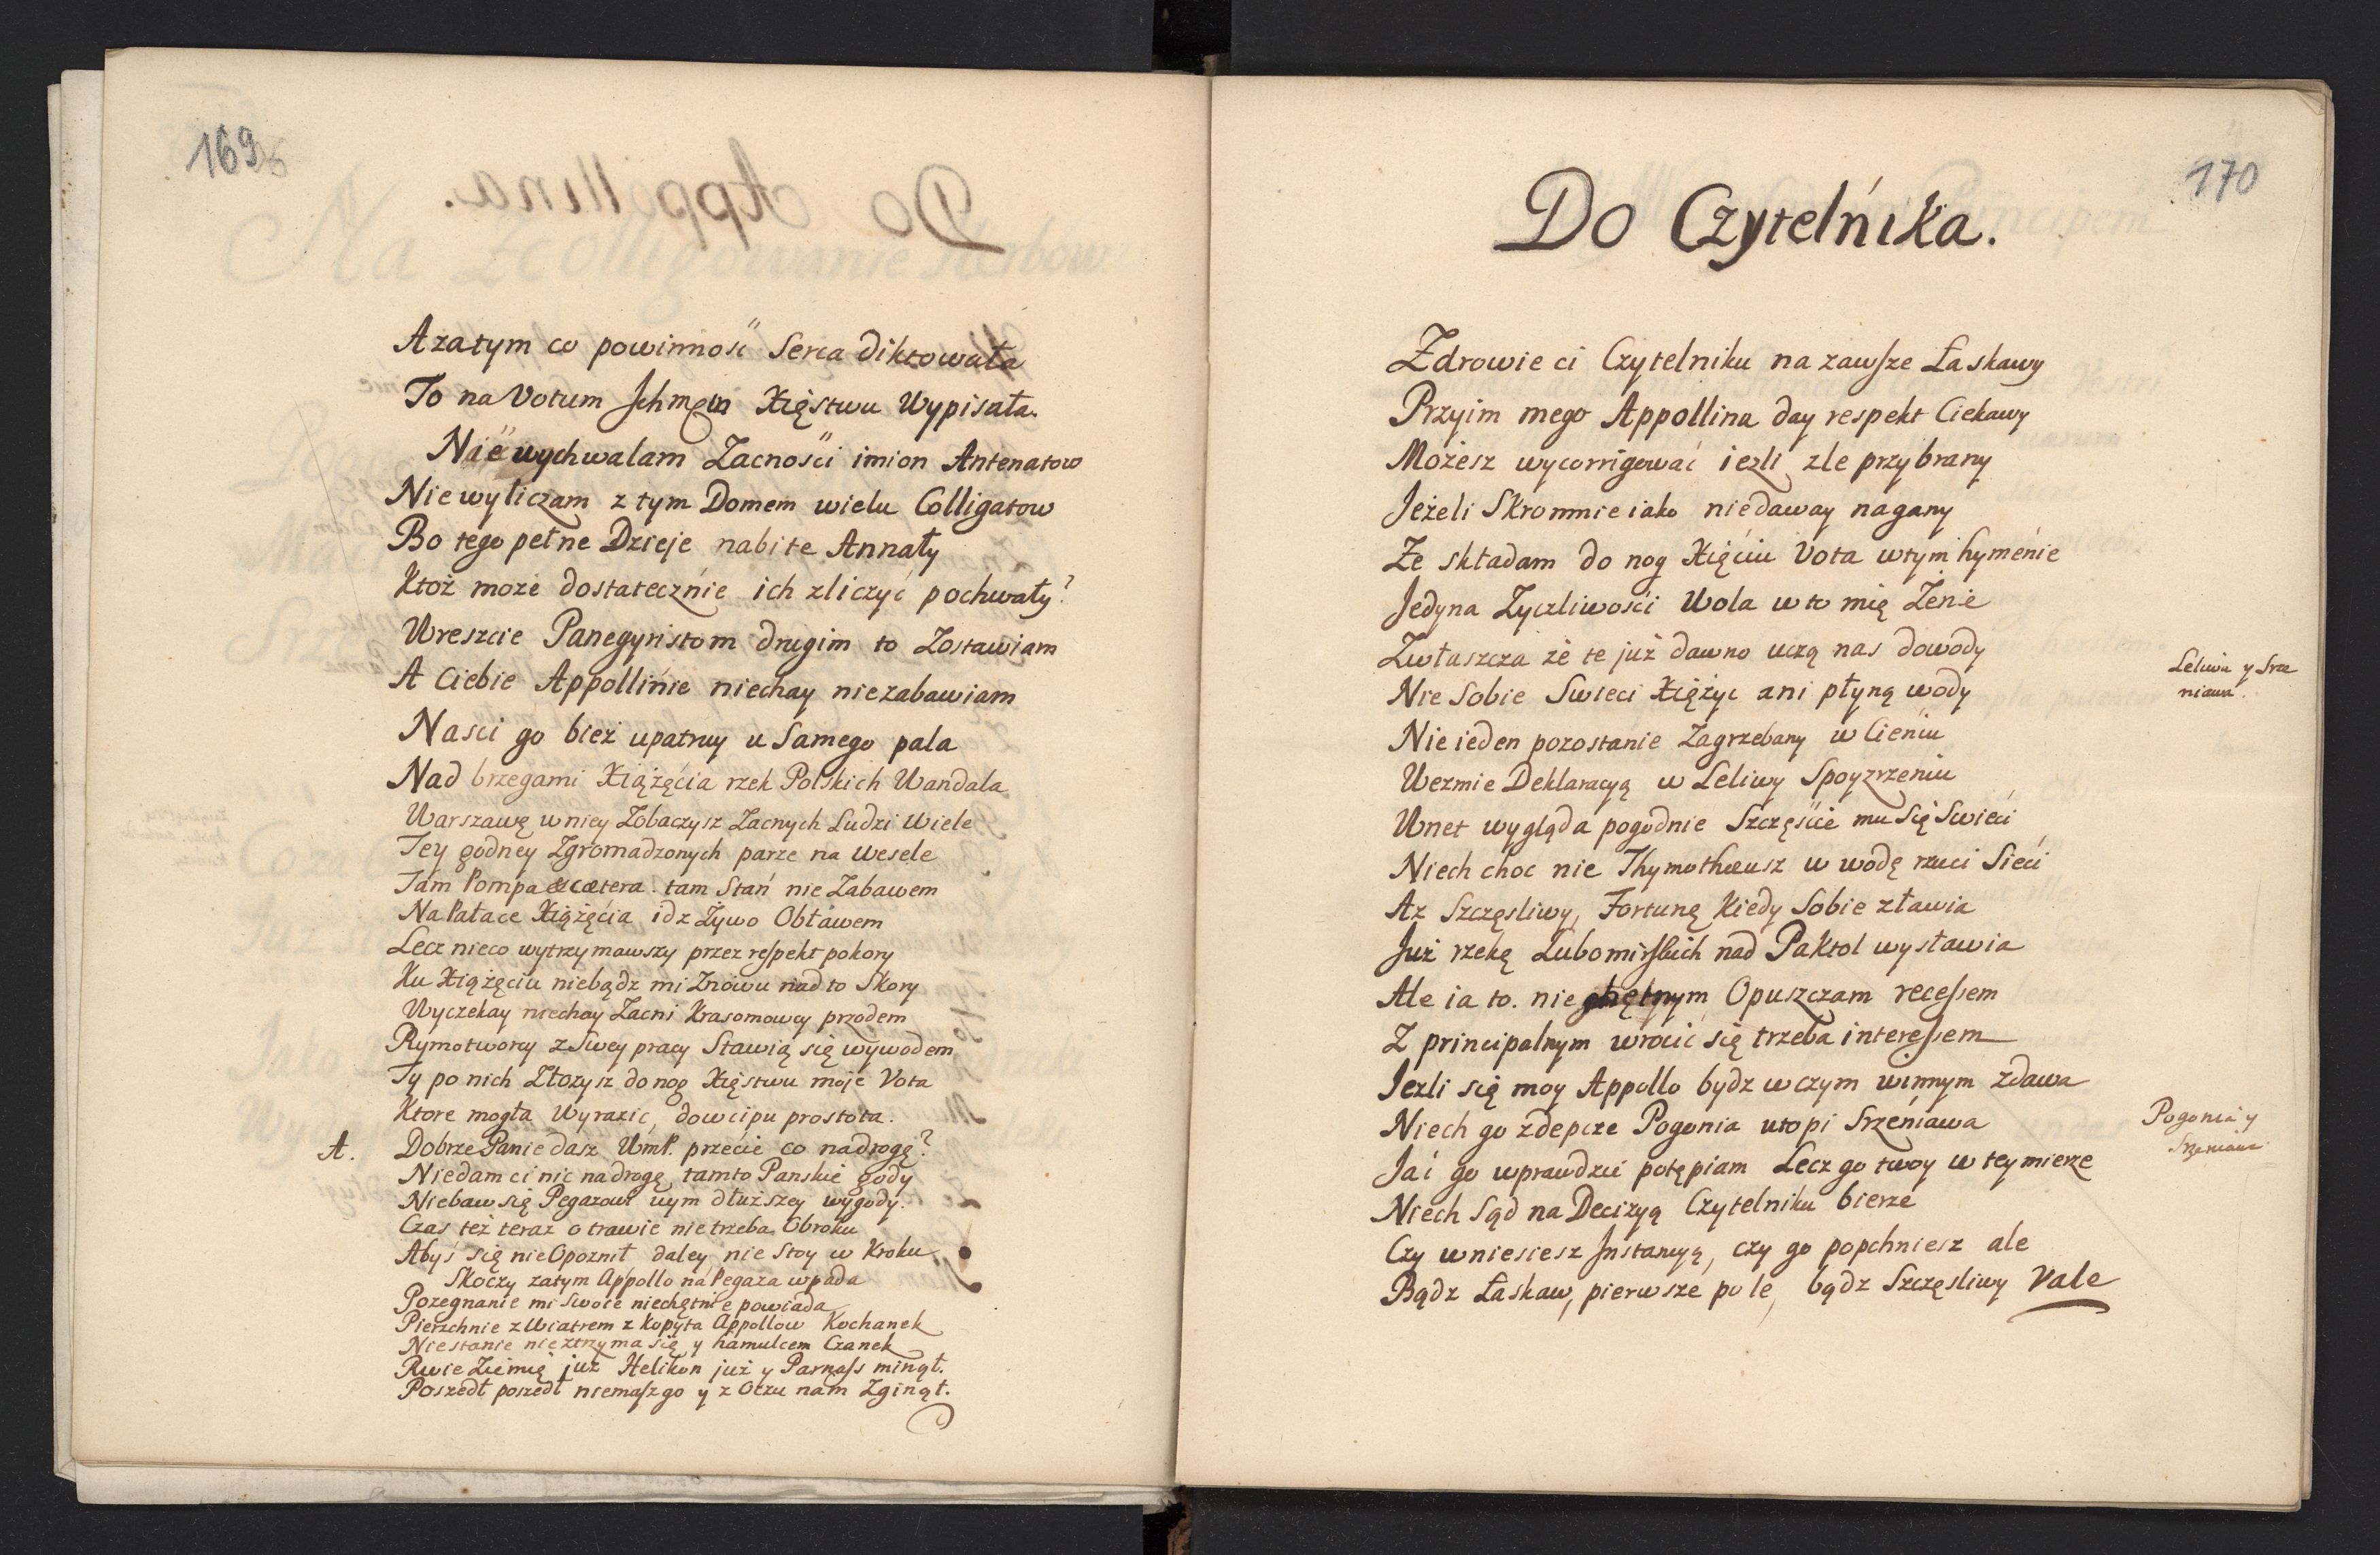 169
A zatym co powinność Serca diktowała
To na Votum Ichmcm Xięstwu Wypisała.
Nie wychwalam Zacności imion Antenatow
Nie wyliczam z tym Domem wielu Colligatow
Bo tego pełne Dzieje nabite Annały
Ktoż może dostatecznie ich zliczyć pochwały?
Wreszcie Panegyristom drugim to Zostawiam
A Ciebie Appollinie niechay niezabawiam
Nasci go bież upatruy u Samego pala
Nad brzegami Xiążęcia rzek Polskich Wandala
Warszawę w niey Zobaczysz Zacnych Ludzi Wiele
Tey godney Zgromadzonych parze na Wesele
Tam Pompa & cætera. tam Stań nie Zabawem
Na Pałace Xiążęcia idz Żywo Obławem
Lecz nieco wytrzymawszy przez respekt pokory
Ku Xiążęciu niebądz mi Znowu nad to Skory
Wyczekay niechay Zacni Krasomowcy przodem
Rymotworcy z Swey pracy Stawią się wywodem
Ty po nich Złożysz do nog Xięstwu moje Vota
Ktore mogła Wyrazić, dowcipu prostota.
A. Dobrze Panie dasz WmP. przecie co na drogę?
Niedam ci nic na drogę, tamto Panskie gody
Niebaw się Pegazowi uym dłuższey wygody.
Czas też teraz o trawie nie trzeba Obroku
Abyś się nie Opoznił daley nie Stoy w Kroku
Skoczy zatym Appollo na Pegaza wpada
Pozegnanie mi Swoie niechętnie powiada
Pierzchnie z Wiatrem z Kopyta Appollow Kochanek
Niestanie nieztrzyma się y hamulcem Czanek
Rwie Ziemię już Helikon już y Parnass minął.
Poszedł poszedł niemasz go y z Oczu nam Zginął.
170
Do Czytelnika.
Zdrowie ci Czytelniku na zawsze Łaskawy
Przyim mego Appollina day respekt Ciekawy
Możesz wycorrigować iezli zle przybrany
Jeżeli Skromnie iako niedaway nagany
Ze składam do nog Xięciu Vota w tym hymenie
Jedyna Zyczliwości Wola w to mię Żenie
Zwłaszcza że te już dawno uczą nas dowody
Nie Sobie Swieci Xiężyc ani płyną wody
Leliwa y Srze
niawa.
Nie ieden pozostanie Zagrzebany w Cieniu
Wezmie Deklaracyą w Leliwy Spoyzrzeniu
Wnet wygląda pogodnie Szczęście mu Się Swieci
Niech choc nie Thymothæusz w wodę rzuci Sieci
Az Szczęsliwy, Fortunę Kiedy Sobie zławia
Już rzekę Lubomirskich nad Paktol wystawia
Ale ia to. nie chętnym Opuszczam recessem
Z principalnym wrocić się trzeba interessem
Iezli się moy Appollo bydz w czym winnym zdawa
Niech go zdepcze Pogonia utopi Srzeniawa
Pogonia y
Srzeniawa
Ja i go wprawdzie potępiam Lecz go twoy w tey mierze
Niech Sąd na Decizyą Czytelniku bierze
Czy wniesiesz Instancyą, czy go popchniesz ale
Bądz Łaskaw, pierwsze po le, bądz Szczęsliwy Vale